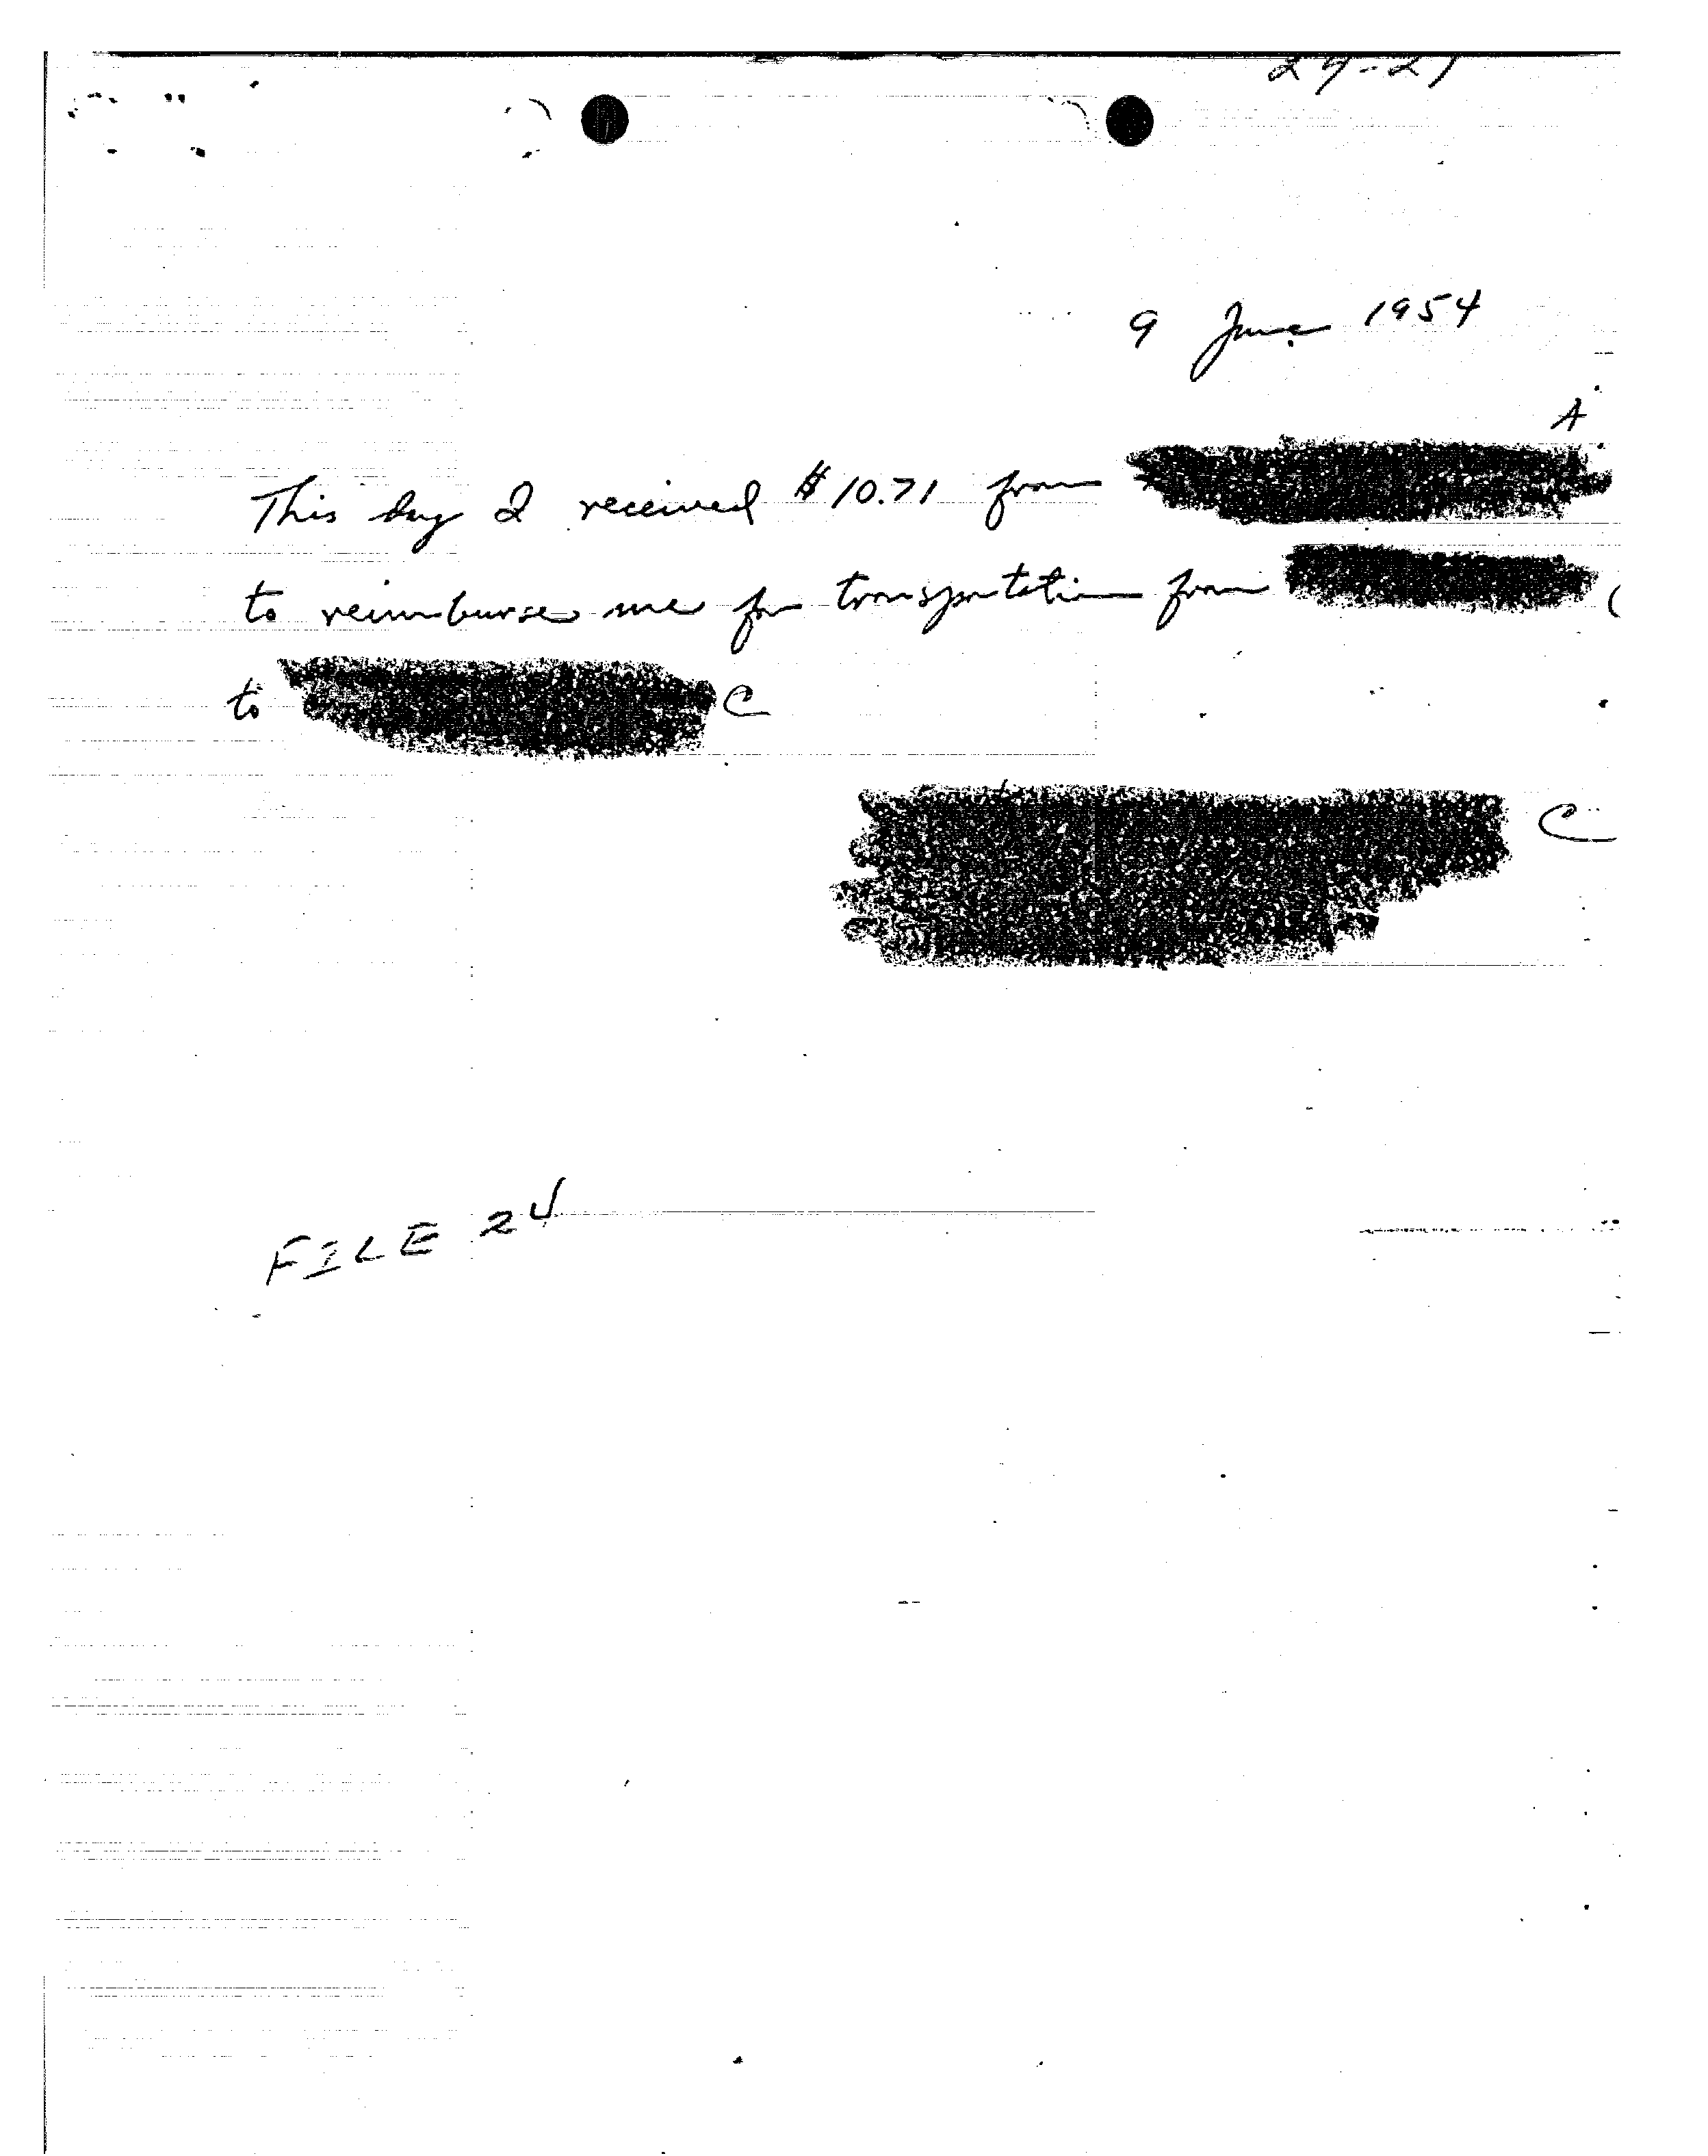 9 June 1954
A
This day I received $10.71 from
to reimburse me for transportation from
to C
C
FILE 24